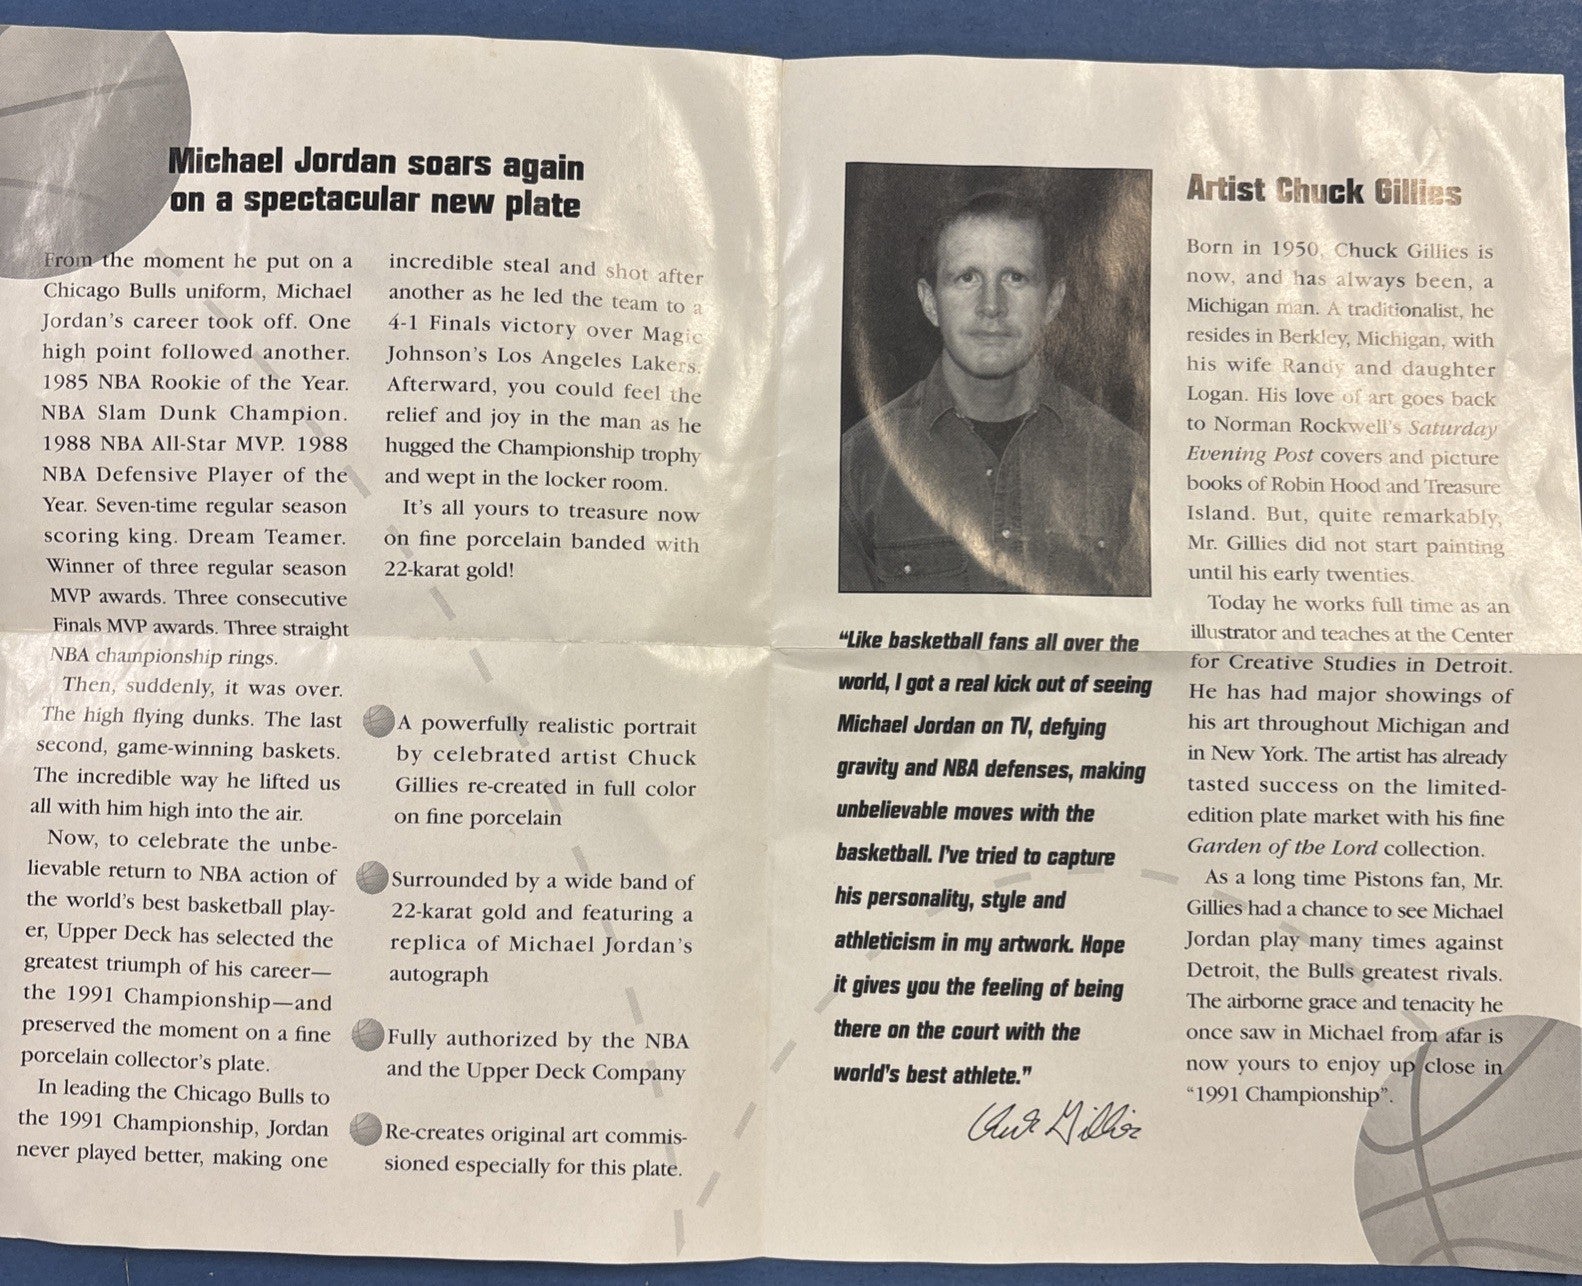 Michael Jordan soars again
on a spectacular new plate
From the moment he put on a
Chicago Bulls uniform, Michael
Jordan's career took off. One
high point followed another.
1985 NBA Rookie of the Year.
NBA Slam Dunk Champion.
1988 NBA All-Star MVP. 1988
NBA Defensive Player of the
Year. Seven-time regular season
scoring king. Dream Teamer.
Winner of three regular season
MVP awards. Three consecutive
Finals MVP awards. Three straight
NBA championship rings.
Then, suddenly, it was over.
The high flying dunks. The last
second, game-winning baskets.
The incredible way he lifted us
all with him high into the air.
Now, to celebrate the unbe-
lievable return to NBA action of
the world's best basketball play-
er, Upper Deck has selected the
greatest triumph of his career—
the 1991 Championship—and
preserved the moment on a fine
porcelain collector's plate.
In leading the Chicago Bulls to
the 1991 Championship, Jordan
never played better, making one
incredible steal and shot after
another as he led the team to a
4-1 Finals victory over Magic
Johnson's Los Angeles Lakers.
Afterward, you could feel the
relief and joy in the man as he
hugged the Championship trophy
and wept in the locker room.
It's all yours to treasure now
on fine porcelain banded with
22-karat gold!
A powerfully realistic portrait
by celebrated artist Chuck
Gillies re-created in full color
on fine porcelain
Surrounded by a wide band of
22-karat gold and featuring a
replica of Michael Jordan's
autograph
Fully authorized by the NBA
and the Upper Deck Company
Re-creates original art commis-
sioned especially for this plate.
"Like basketball fans all over the
world, I got a real kick out of seeing
Michael Jordan on TV, defying
gravity and NBA defenses, making
unbelievable moves with the
basketball. I've tried to capture
his personality, style and
athleticism in my artwork. Hope
it gives you the feeling of being
there on the court with the
world's best athlete."
Chuck Gillies
Artist Chuck Gillies
Born in 1950, Chuck Gillies is
now, and has always been, a
Michigan man. A traditionalist, he
resides in Berkley, Michigan, with
his wife Randy and daughter
Logan. His love of art goes back
to Norman Rockwell's Saturday
Evening Post covers and picture
books of Robin Hood and Treasure
Island. But, quite remarkably,
Mr. Gillies did not start painting
until his early twenties.
Today he works full time as an
illustrator and teaches at the Center
for Creative Studies in Detroit.
He has had major showings of
his art throughout Michigan and
in New York. The artist has already
tasted success on the limited-
edition plate market with his fine
Garden of the Lord collection.
As a long time Pistons fan, Mr.
Gillies had a chance to see Michael
Jordan play many times against
Detroit, the Bulls greatest rivals.
The airborne grace and tenacity he
once saw in Michael from afar is
now yours to enjoy up close in
"1991 Championship".